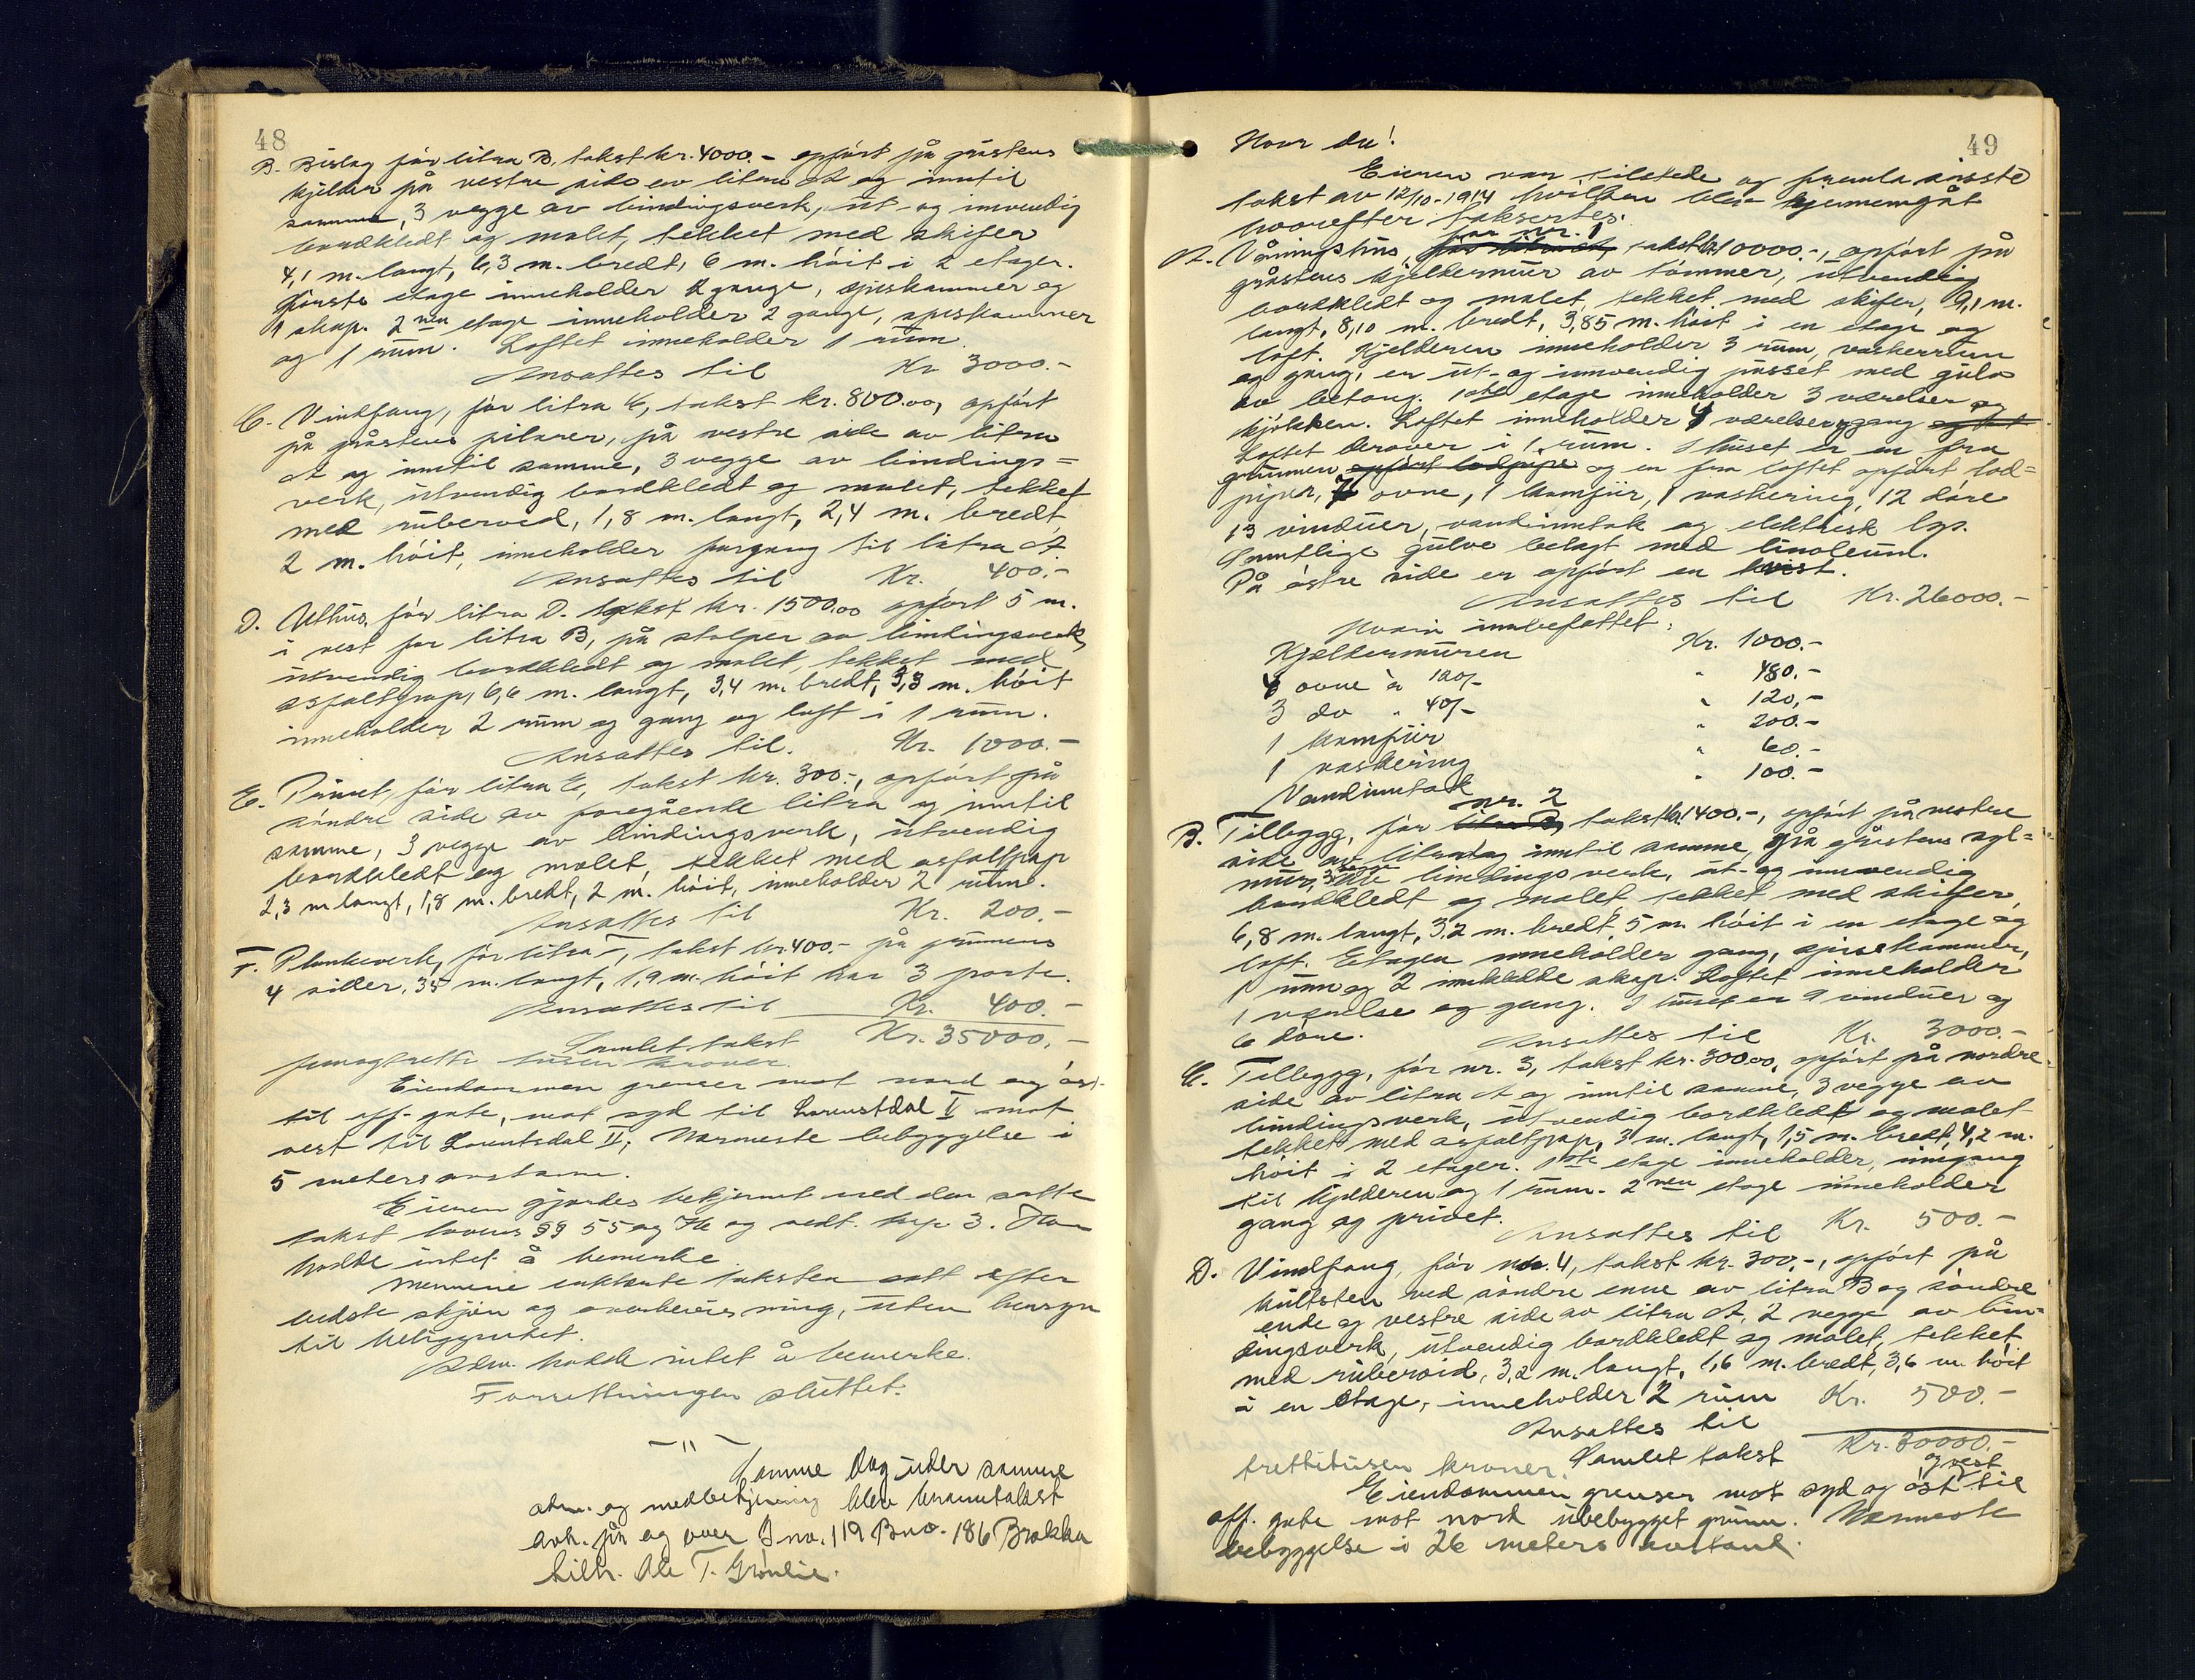 48
B. Bislag før litra B, takst kr. 4000.- opført på gråstens
kjelder på vestre side av litra A og inntil
samme, 3 vegge av bindingsverk, ut- og innvendig
bordkledt og malet, tekket med skifer
4,1 m. langt, 6,3 m. bredt, 6 m. høit i 2 etager.
Første etage inneholder 2 gange, spiskammer og
1 skap. 2nen etage inneholder 2 gange, spiskammer
og 1 rum. Loftet inneholder 1 rum.
Ansattes til Kr. 3000.-
C. Vindfang, før litra C, takst kr. 800.00, opført
på gråstens pilarer, på vestre side av litra
A og inntil samme, 3 vegge av bindings=
verk, utvendig bordkledt og malet, tekket
med ruberoid, 1,8 m. langt, 2,4 m. bredt
2 m. høit, inneholder forgang til litra A
Ansattes til Kr. 400.-
D. Uthus, før litra D. takst kr. 1500.00 opført 5 m.
i vest for litra B, på stolper av bindingsverk,
utvendig bordkledt og malet, tekket med
asfaltpap, 6,6 m. langt, 3,4 m. bredt, 3,3 m. høit
inneholder 2 rum og gang og loft i 1 rum.
Ansattes til. Kr. 1000.-
E. Privet, før litra E, takst kr. 300.-, opført på
søndre side av foregående litra og inntil
samme, 3 vegge av bindingsverk, utvendig
bordkledt og malet, tekket med asfaltpap
2,3 m langt, 1,8 m. bredt, 2 m. høit, inneholder 2 rum.
Ansattes til Kr. 200.-
F. Plankeverk, før litra F, takst kr. 400.- på grunnens
4 sider, 35 m. langt, 1,9 m. høit har 3 porte.
Ansattes til Kr. 400.-
Samlet takst Kr. 35000.-
femogtretti tusen kroner.
Eiendommen grenser mot nord og øst
til off. gate, mot syd til Lorentsdal V mot
vest til Lorentsdal II; Nærmeste bebyggelse i
5 meters avstann.
Eieren gjordes bekjennt med den satte
takst lovens §§ 55 og 76 og vedt. kap. 3. Han
hadde intet å bemerke.
Mennene erklærte taksten satt efter
bedste skjøn og overbevisning, uten hensyn
til beliggenhet.
Adm. hadde intet å bemerke.
Forretningen sluttet.
— " —
Samme dag under samme
adm. og medbetjening blev branntakst
avh. på og over Gno. 119 Bno. 186 Brakka
tilh. Ole T. Grønlie.
49
Hvor da!
Eieren var tilstede og fremla sisste
takst av 12/10-1914 hvilken blev gjennemgåt
hvorefter taksertes:
før nr. 1
A. Våningshus, før litra A, takst kr. 10000.-, opført på
gråstens kjeldermur av tømmer, utvendig
bordkledt og malet, tekket med skifer, 9,1 m.
langt, 8,10 m. bredt, 3,85 m. høit i en etage og
loft. Kjelderen inneholder 3 rum, vaskerrum
og gang, er ut- og innvendig pusset med gulv
av betong. 1ste etage inneholder 3 værelser og
kjøkken. Loftet inneholder 4 værelser, gang
Loftet derover i 1 rum. I huset er en fra
grunnen opført lodpipe og en fra loftet opført lod=
piper, 7 ovne, 1 komfür, 1 vaskering, 12 døre
13 vinduer, vandinntak og elektrisk lys.
Samtlige gulve belagt med linoleum.
På østre side er opført en kvist.
Ansattes til Kr. 26000.-
Hvori innbefattet:
Kjeldermuren Kr. 1000.-
4 ovne à 120/- " 480.-
3 do " 40/- " 120,-
1 komfür " 200.-
1 vaskering " 60.-
Vandinntak " 100.-
nr. 2
B. Tilbygg, før litra B, takst kr. 1400.-, opført på vestre
side av litra A og inntil samme, på gråstens syl=
mur, 3 vegge bindingsverk, ut- og innvendig
bordkledt og malet tekket med skifer,
6,8 m. langt, 3,2 m. bredt, 5 m. høit i en etage og
loft. Etagen inneholder gang, spisekammer,
1 rum og 2 innkledde skap. Loftet inneholder
1 værelse og gang. I huset er 9 vinduer og
6 døre. Ansattes til Kr. 3000.-
C. Tilbygg, før nr. 3, takst kr. 300.00, opført på nordre
side av litra A og inntil samme, 3 vegge av
bindingsverk, utvendig bordkledt og malet
tekket med asfaltpap, 3 m. langt, 1,5 m. bredt, 4,2 m.
høit i 2 etager. 1ste etage inneholder, inngang
til kjelderen og 1 rum. 2nen etage inneholder
gang og privet.
Ansattes til Kr. 500.-
D. Vindfang, før nr. 4, takst kr. 300.-, opført på
kultsten ved søndre enne av litra B og søndre
ende og vestre side av litra A, 2 vegge av bin=
dingsverk, utvendig bordkledt og malet, tekket
med ruberoid, 3,2 m. langt, 1,6 m. bredt, 3,6 m. høit
i en etage, inneholder 2 rum
Ansattes til Kr. 500.-
Samlet takst Kr. 30000.-
trettitusen kroner.
og vest
Eiendommen grenser mot syd og øst til
off. gate mot nord ubebygget grunn. Nærmeste
bebyggelse i 26 meters avstand.